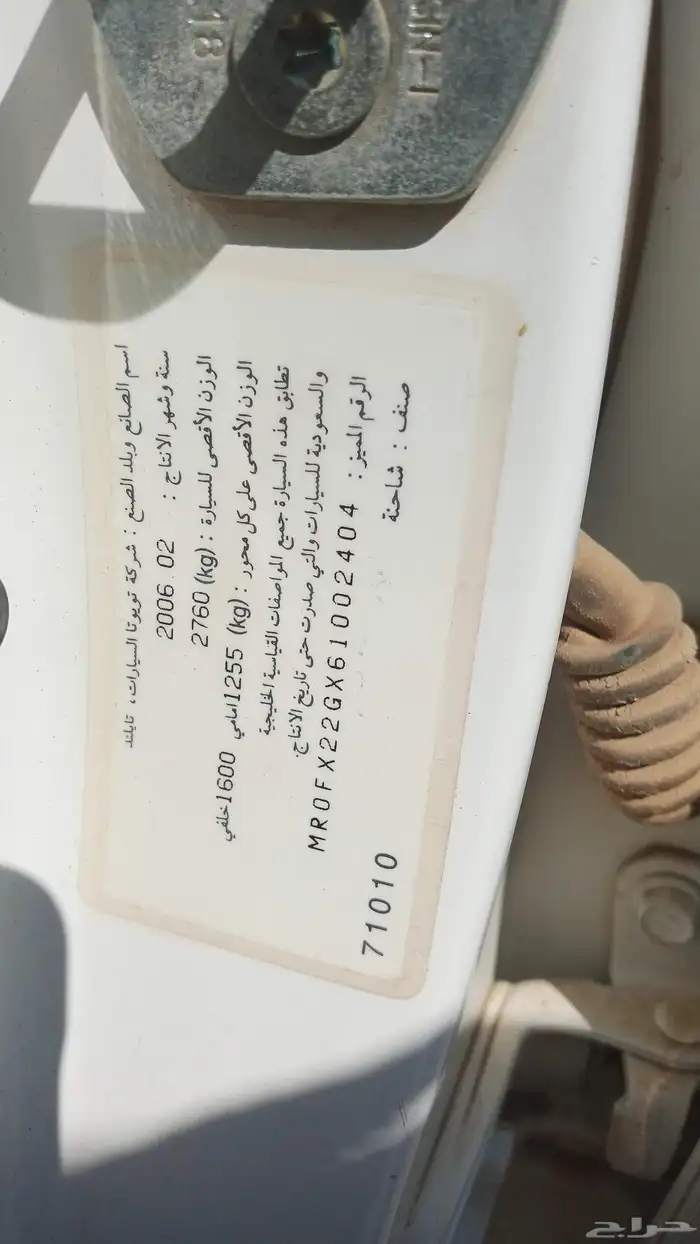 اسم الصانع وبلد الصنع : شركة تويوتا السيارات، تايلند
سنة وشهر الانتاج : 2006.02
الوزن الأقصى للسيارة : (kg) 2760
الوزن الأقصى على كل محور : (kg) 1255امامي 1600خلفي
تطابق هذه السيارة جميع المواصفات القياسية الخليجية
والسعودية للسيارات والتي صدرت حتى تاريخ الانتاج.
الرقم المميز : MR0FX22GX61002404
صنف : شاحنة
71010
18
حراج